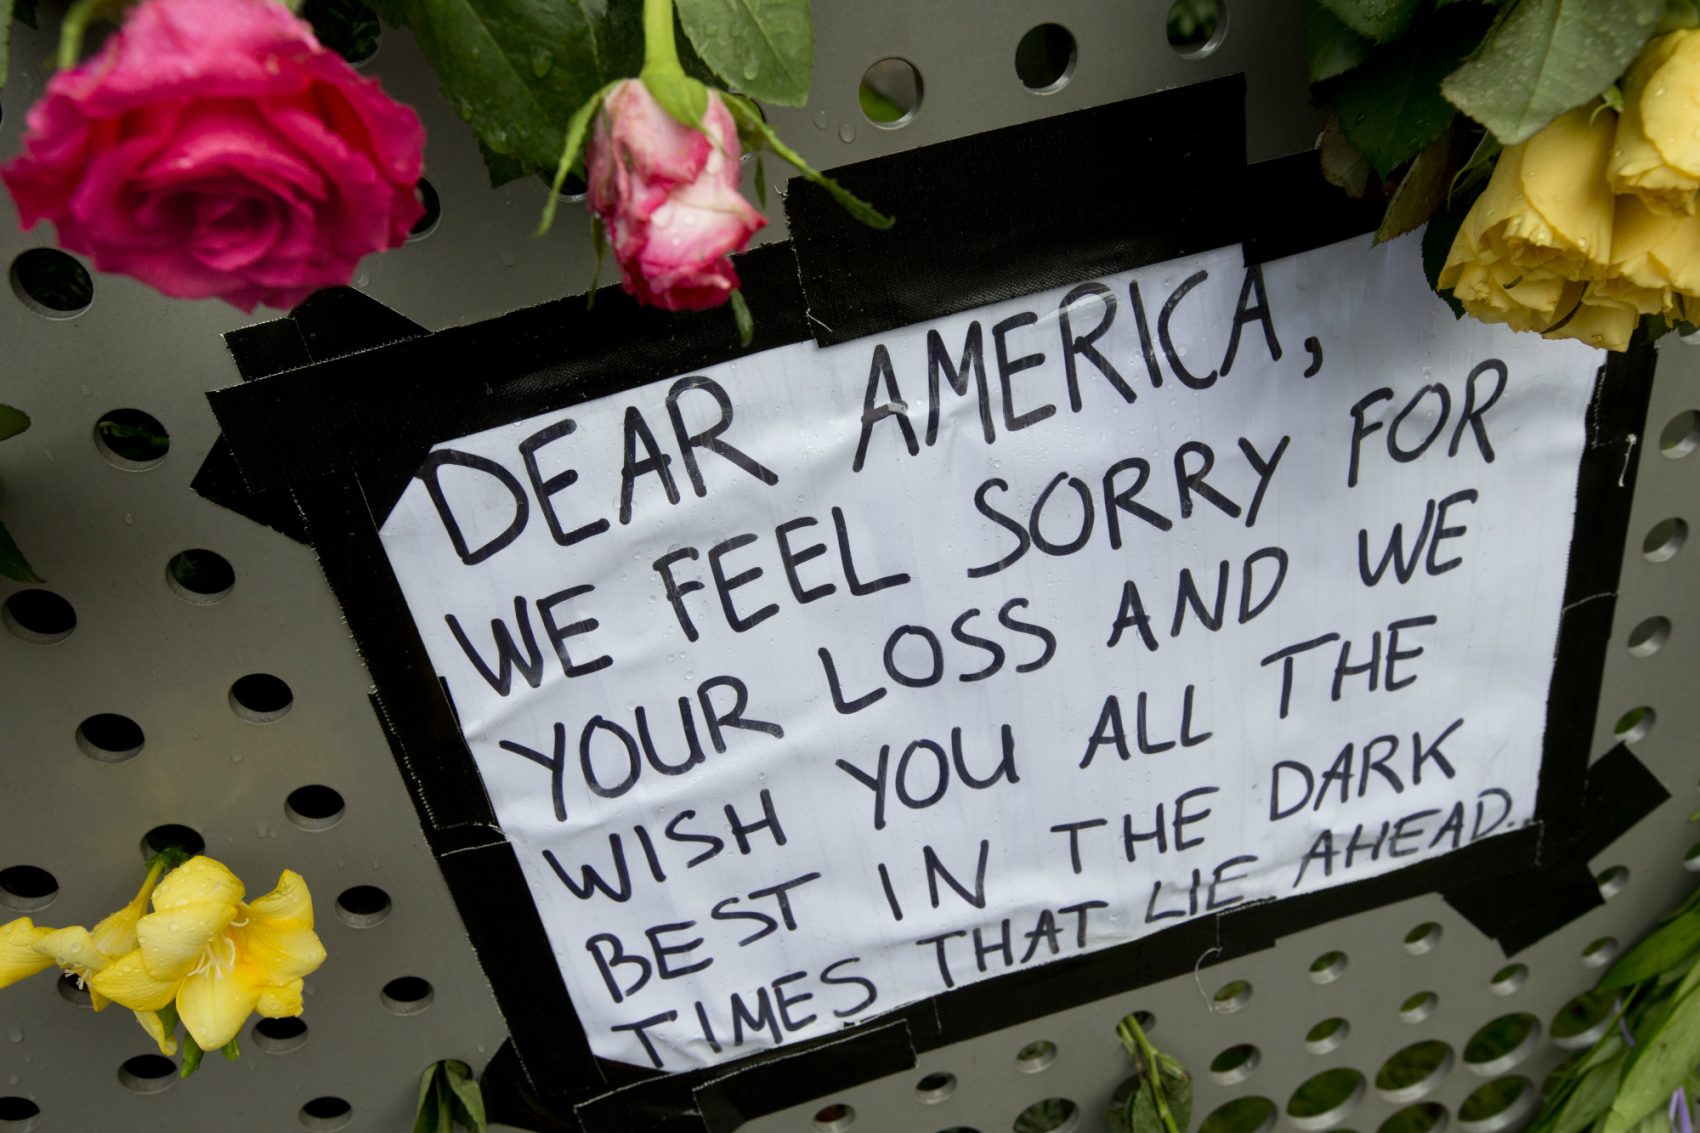 DEAR AMERICA,
WE FEEL SORRY FOR
YOUR LOSS AND WE
WISH YOU ALL THE
BEST IN THE DARK
TIMES THAT LIE AHEAD..